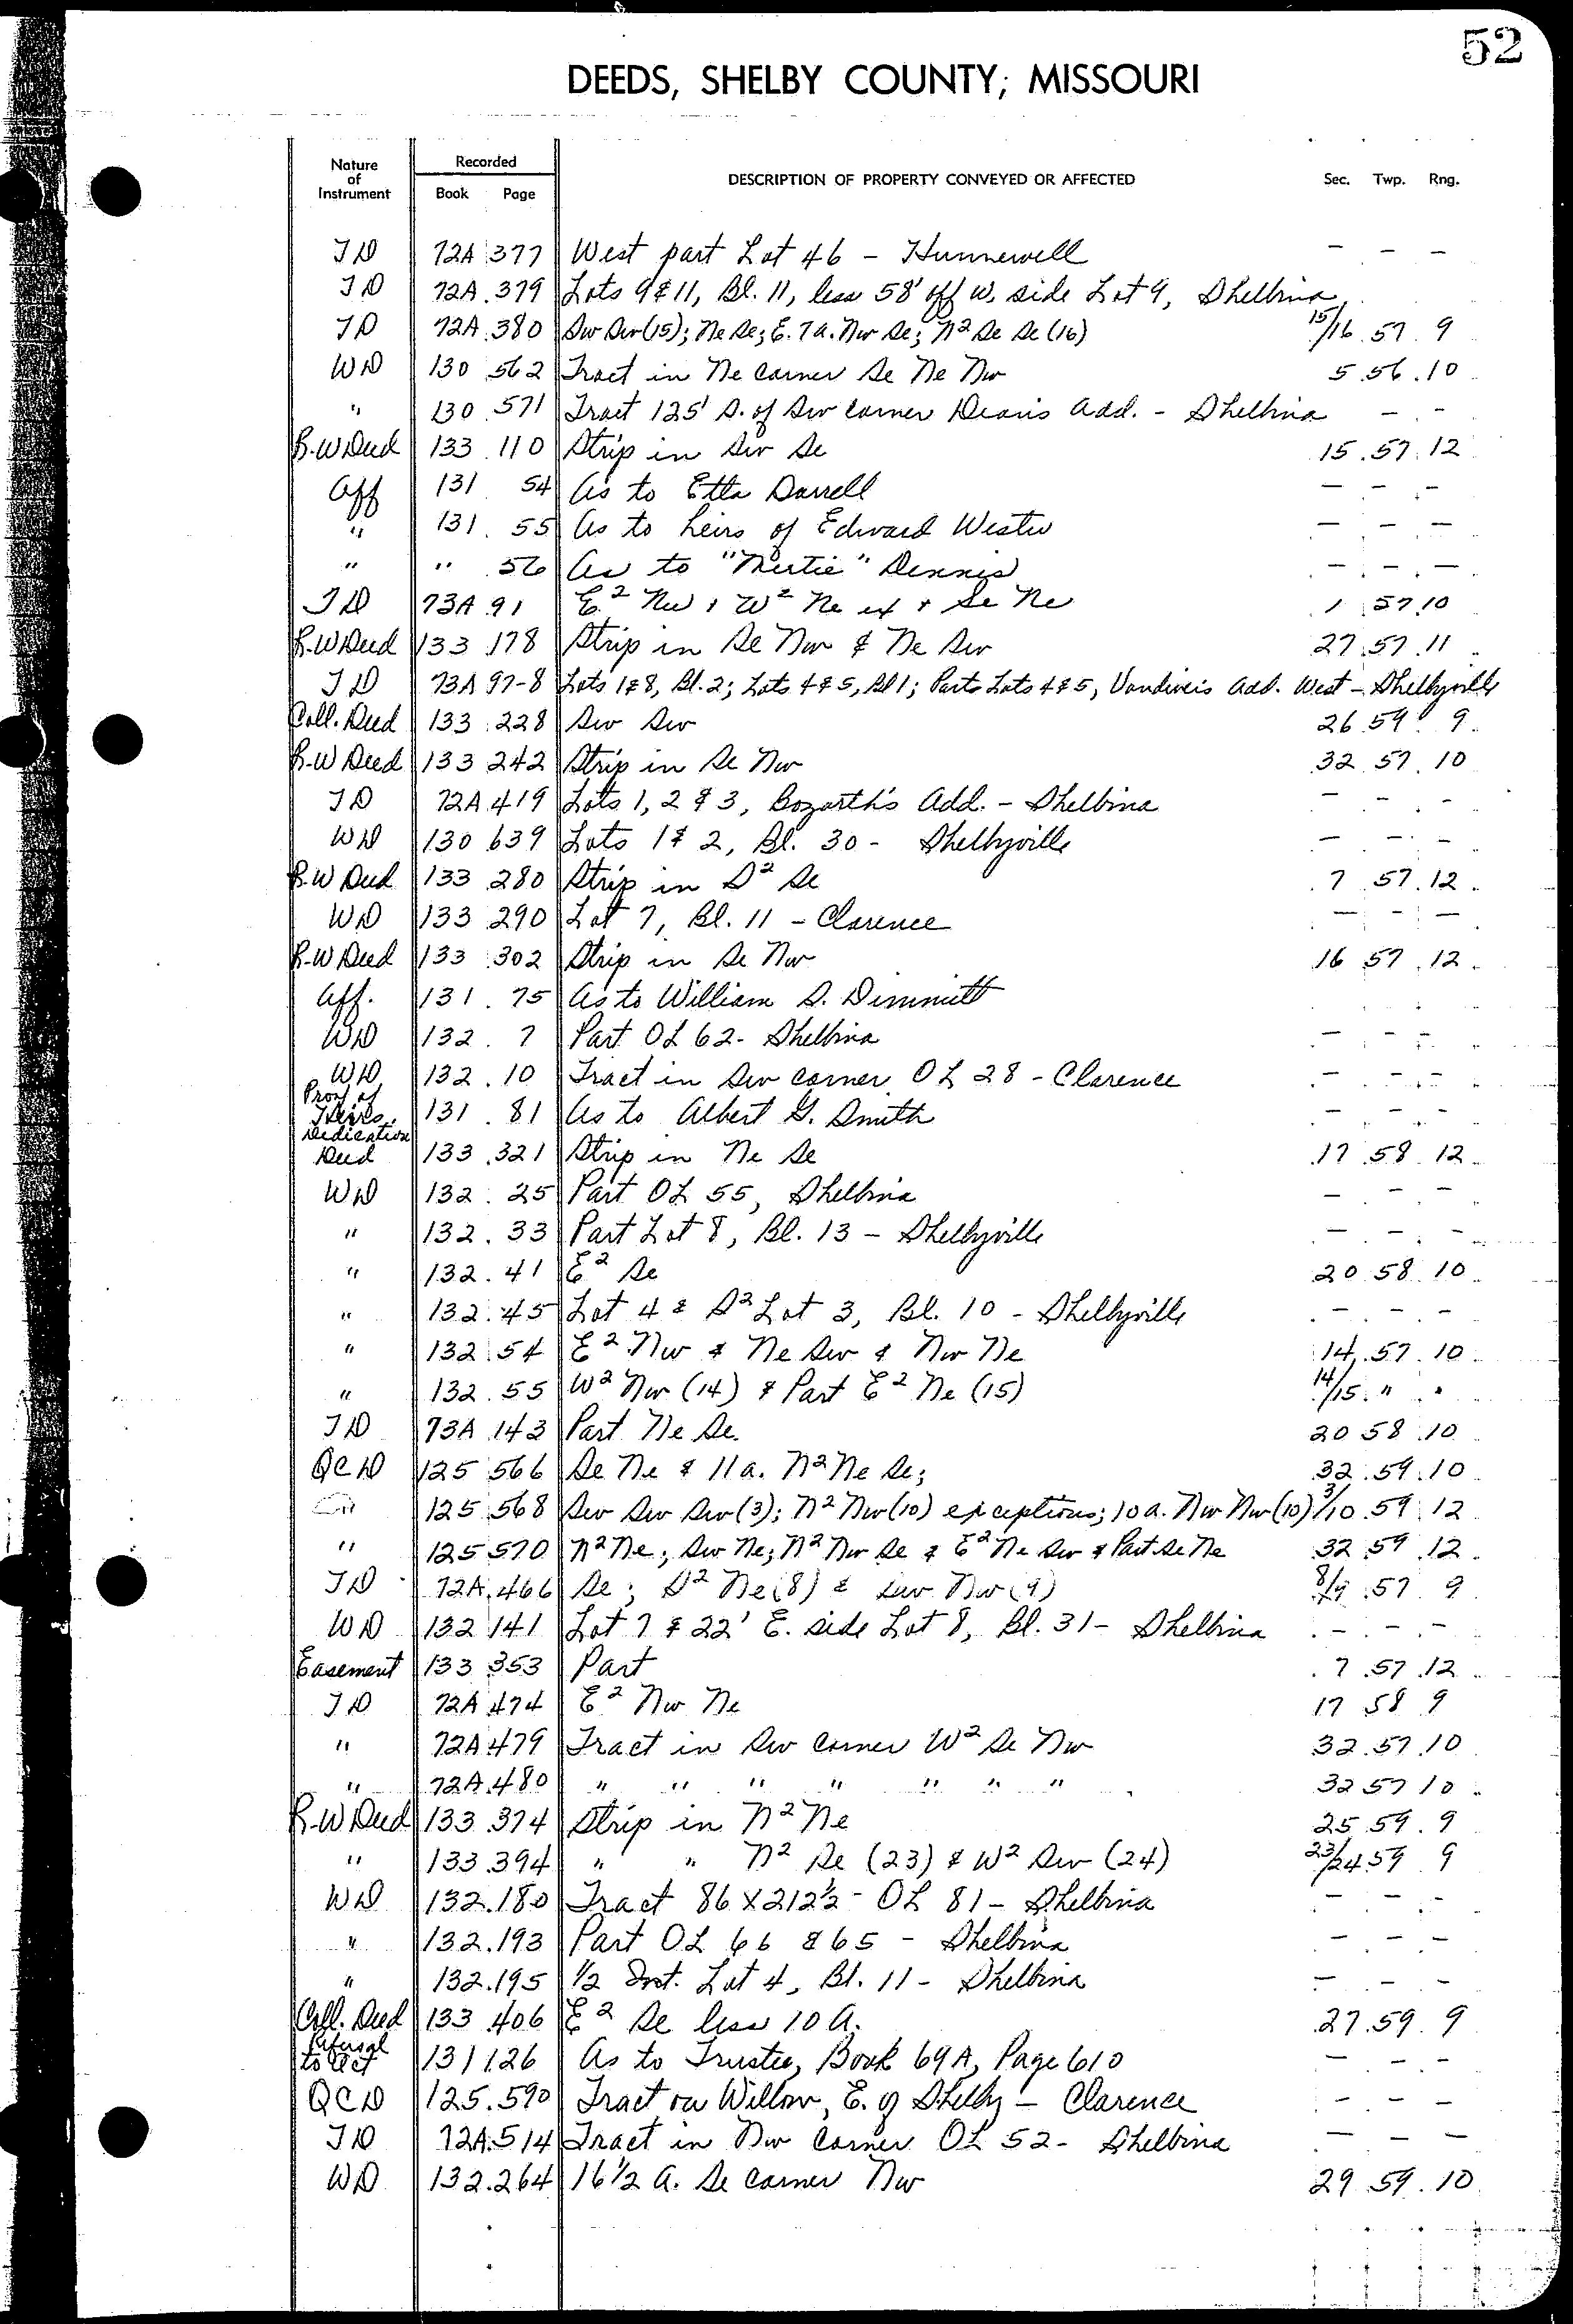 52
DEEDS, SHELBY COUNTY; MISSOURI
Nature of Instrument | Recorded Book Page | DESCRIPTION OF PROPERTY CONVEYED OR AFFECTED | Sec. Twp. Rng.
TD 72A 377 West part Lot 46 - Hunnewell - - -
TD 72A.379 Lots 9 & 11, Bl. 11, less 58' off W. side Lot 9, Shelbina
TD 72A.380 Sw Sw (15); Ne Se; E. 7a. Nw Se; N2 Se Se (16) 15/16 . 57 . 9
WD 130 562 Tract in Ne corner Se Ne Nw 5 56 . 10
" 130 . 571 Tract 125' S. of Sw corner Deans Add. - Shelbina - -
R-W Deed 133 . 110 Strip in Sw Se 15 . 57 . 12
Aff 131 54 As to Etta Darrell - - -
" 131 . 55 As to heirs of Edward Wester - - -
" " . 56 As to "Mertie" Dennis - - -
TD 73A 91 E2 Nw & W2 Ne ex & Se Ne 1 57 10
R-W Deed 133 178 Strip in Se Nw & Ne Sw 27 . 57 . 11
TD 73A 97-8 Lots 1 & 8, Bl. 2; Lots 4 & 5, Bl 1; Parts Lots 4 & 5, Vandivers Add. West - Shelbyville
Coll. Deed 133 . 228 Sw Sw 26 59 9
R-W Deed 133 242 Strip in Se Nw 32 57 . 10
TD 72A 419 Lots 1, 2 & 3, Bozarth's Add. - Shelbina - - -
WD 130 639 Lots 1 & 2, Bl. 30 - Shelbyville - - -
R-W Deed 133 280 Strip in S2 Se 7 57 . 12
WD 133 290 Lot 7, Bl. 11 - Clarence - - -
R-W Deed 133 . 302 Strip in Se Nw 16 57 . 12
Aff. 131 . 75 As to William S. Dimmitt
WD 132 . 7 Part OL 62 - Shelbina - - -
WD 132 . 10 Tract in Sw corner OL 28 - Clarence - - -
Proof of Heirs 131 . 81 As to Albert G. Smith - - -
Dedication Deed 133 . 321 Strip in Ne Se 17 . 58 . 12
WD 132 . 25 Part OL 55, Shelbina - - -
" 132 . 33 Part Lot 8, Bl. 13 - Shelbyville - - -
" 132 . 41 E2 Se 20 58 10
" 132 . 45 Lot 4 & S2 Lot 3, Bl. 10 - Shelbyville - - -
" 132 . 54 E2 Nw & Ne Sw & Nw Ne 14 . 57 . 10
" 132 . 55 W2 Nw (14) & Part E2 Ne (15) 14/15 . " "
TD 73A 143 Part Ne Se. 20 58 . 10
QCD 125 566 Se Ne & 11a. N2 Ne Se; 32 . 59 . 10
" 125 568 Sw Sw Sw (3); N2 Nw (10) exceptions; 10 a. Nw Nw (10) 3/10 . 59 12
" 125 570 N2 Ne; Sw Ne; N2 Nw Se & E2 Ne Sw & Part Se Ne 32 59 . 12
TD 72A . 466 Se; S2 Ne (8) & Sw Nw (9) 8/9 . 57 9
WD 132 141 Lot 7 & 22' E. side Lot 8, Bl. 31 - Shelbina - - -
Easement 133 353 Part 7 . 57 . 12
TD 72A 474 E2 Nw Ne 17 58 9
" 72A 479 Tract in Sw Corner W2 Se Nw 32 . 57 . 10
" 72A . 480 " " " " " " " 32 57 10
R-W Deed 133 . 374 Strip in N2 Ne 25 59 . 9
" 133 . 394 " " N2 Se (23) & W2 Sw (24) 23/24 59 9
WD 132 . 180 Tract 86 X 212½ - OL 81 - Shelbina - - -
" 132 . 193 Part OL 66 & 65 - Shelbina - - -
" 132 . 195 1/2 Int. Lot 4, Bl. 11 - Shelbina - - -
Coll. Deed 133 . 406 E2 Se less 10 A. 27 . 59 . 9
Refusal to act 131 126 As to Trustee, Book 69A, Page 610 - - -
QCD 125 . 590 Tract on Willow, E. of Shelby - Clarence - - -
TD 72A . 514 Tract in Nw Corner OL 52 - Shelbina - - -
WD 132 . 264 16 1/2 A. Se corner Nw 29 . 59 . 10